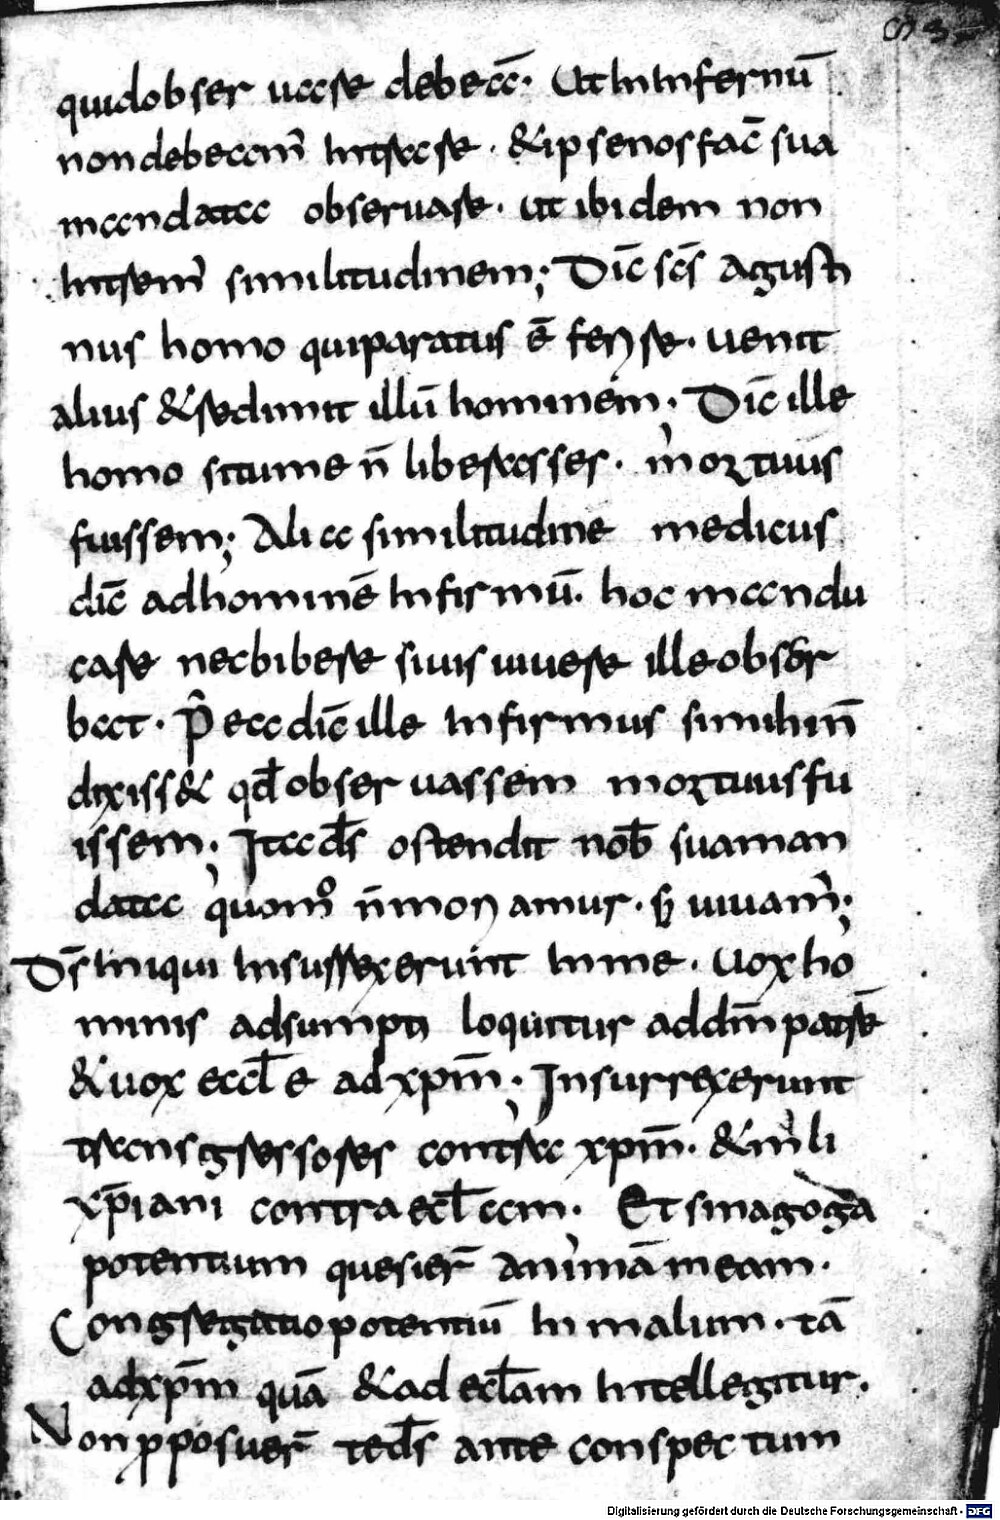 quidobser uare debeat. Ut In Infernū
non debeam̄ Intrare. &ipse nos fac̄ sua
mandata obseruare. ut ibidem non
Intrem̄ similitudinem; Dic̄ sc̄s agusti
nus homo qui paratus ē ferire. uenit
alius &redimit illū hominem; Dic̄ ille
homo situ me n̄ liberasses. mortuus
fuissem; Alia similitudine medicus
dic̄ ad hominē Infirmū. hoc mandu
care nec bibere siuis uiuere ille obser
bat. P̄ ea dic̄ ille Infirmus simihin̄
dixiss& qd̄ obser uassem mortuus fu
issem; Ita d̄s ostendit nob̄ sua man
data quom̊ n̄ moriamur. s; uiuam̄;
D̄s Iniqui Insurrexerunt In me. uox ho
minis adsumpti loquitur ad dm̄ patrē
&uox eccl̄e ad xpm̄; Insurrexerunt
transgressores contra xpm̄. &mali
xp̄iani contra eccl̄am. Et sinagoga
potentium quesier̄ animā meam.
Congregatio potentiū In malum. tā
ad xpm̄ quā &ad eccl̄am Intellegitur.
Non pposuer̄ te d̄s ante conspec tum
Digitalisierung gefördert durch die Deutsche Forschungsgemeinschaft - DFG